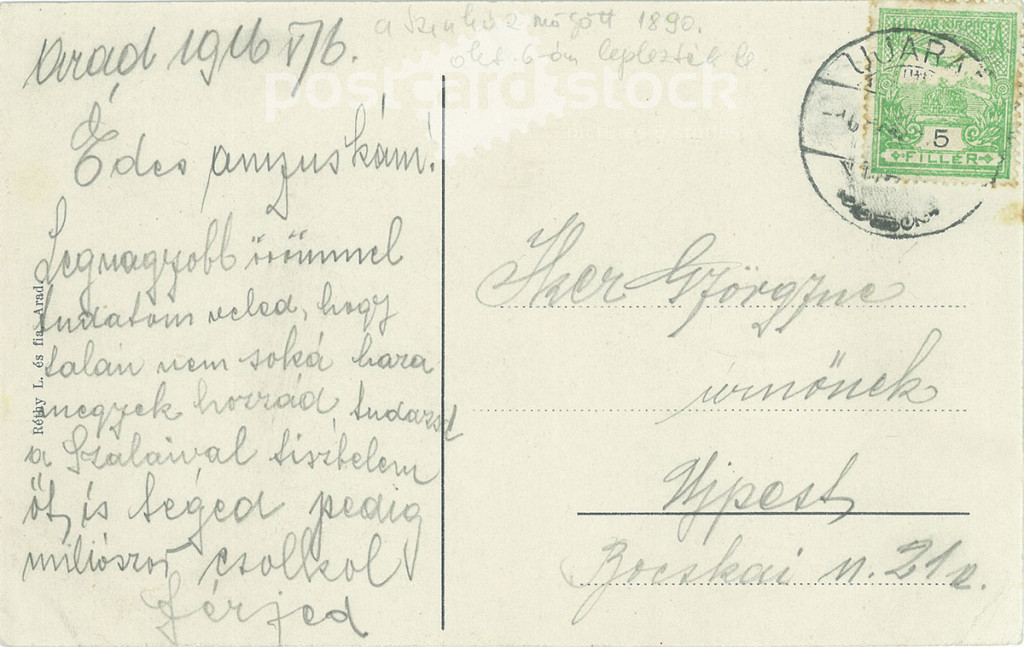 Arad 1916 V/6.
a Színház mögött 1890.
okt. 6-án leplezték le.
postcardstock
Édes anyuskám!
Legnagyobb örömmel
tudatom veled, hogy
talán nem soká haza
megyek hozzád tudasd
a Szalaival tisztelem
őt, is téged pedig
miliószor csollkol
férjed
Réthy L. és fia, Arad
MAGYAR KIR. POSTA
5
FILLÉR
UJARA
Györgyne
urnőnek
Ujpest
Bocskai u. 21